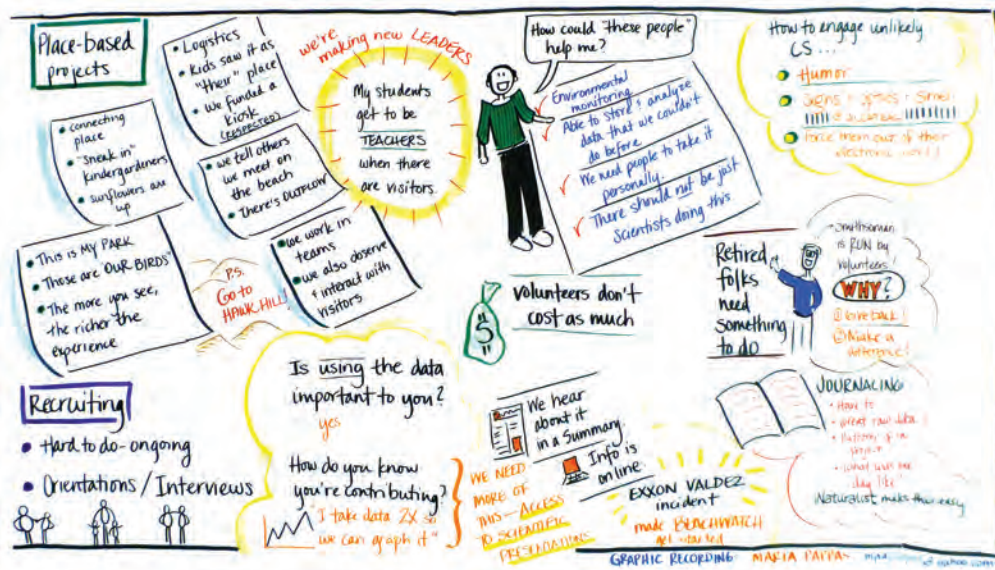 Place-based
projects
• Logistics
• Kids saw it as
"their" place
• We funded a
kiosk
(RESPECTED)
• connecting
place
• "sneak in"
kindergardeners
• sunflowers are
up
• we tell others
we meet on
the beach
• There's OUTFLOW
• This is MY PARK
Those are OUR BIRDS"
• The more you see,
the richer the
experience
• we work in
teams
• we also observe
& interact with
visitors
P.S.
Go to
HAWK HILL!
we're
making new LEADERS
My students
get to be
TEACHERS
when there
are visitors.
How could "these people"
help me?
✓ Environmental
monitoring
✓ Able to store & analyze
data that we couldn't
do before
✓ We need people to take it
personally.
✓ There should not be just
scientists doing this
How to engage unlikely
CS ...
• Humor
• Signs
• Force them out of their
electronic world!
$
Volunteers don't
cost as much
Retired
folks
need
something
to do
Smithsonian
is RUN by
volunteers!
WHY?
① Give back!
② Make a
difference!
Recruiting
• Hard to do - ongoing
• Orientations / Interviews
Is using the data
important to you?
yes
How do you know
you're contributing?
"I take data 2X so
we can graph it"
We hear
about it
in a Summary
Info is
online.
WE NEED
MORE OF
THIS — ACCESS
TO SCIENTIFIC
PRESENTATIONS
EXXON VALDEZ
incident
made BEACHWATCH
get started
JOURNALING
• How to
• Great raw data!
• History of the
project
• "What was the
day like"
Naturalist makes this easy
GRAPHIC RECORDING- MARIA PAPPA-